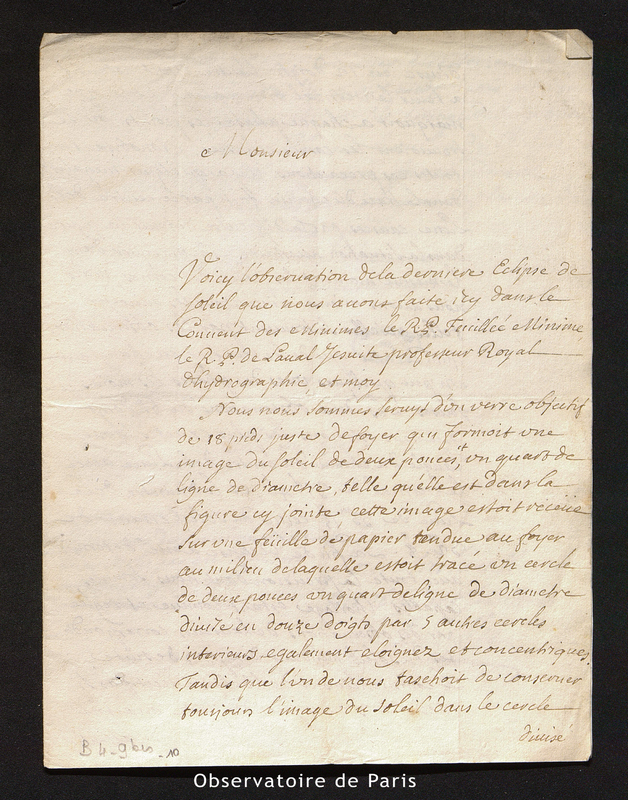 Monsieur
Voicy l'observation dela derniere Eclipse de
soleil que nous auons faite icy dans le
Conuent des Minimes le R.P. Feuillée Minime
le R.P. de Laual Jesuite professeur Royal
d'hydrographie, et moy.
Nous nous sommes seruys d'un verre objectif
de 18 pieds juste defoyer qui formoit une
image du soleil de deux pouces, + un quart de
ligne de diametre, telle quelle est dans la
figure cy jointe, cette image estoit receüe
sur une feüille de papier tendue au foyer
au milieu delaquelle estoit tracé un cercle
de deux pouces un quart deligne de diametre
diuisé en douze doigts par 5 autres cercles
interieurs egalement eloignez et concentriques.
Tandis que l'un de nous taschoit de conseruer
tousjours l'image du soleil dans le cercle
diuisé
B 4-9 bis -10
Observatoire de Paris